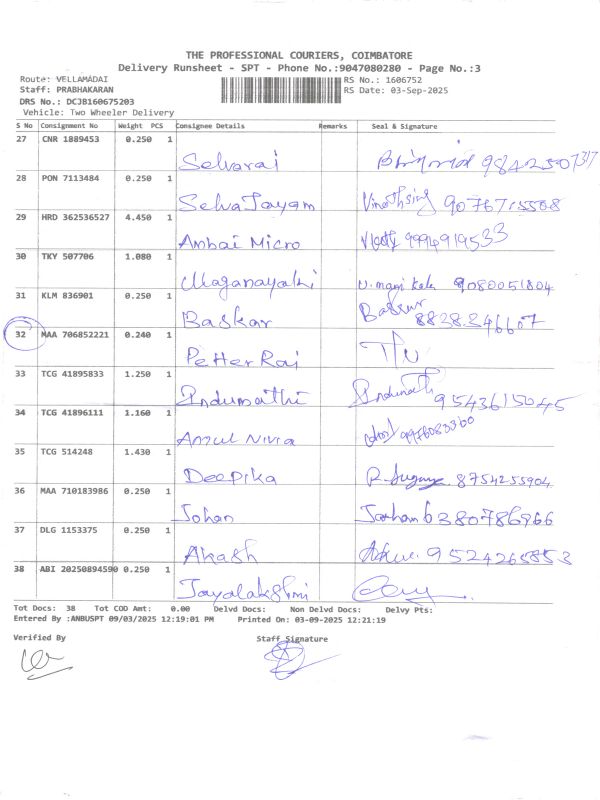 THE PROFESSIONAL COURIERS, COIMBATORE
Delivery Runsheet - SPT - Phone No.:9047080280 - Page No.:3
Route: VELLAMADAI
RS No.: 1606752
Staff: PRABHAKARAN
RS Date: 03-Sep-2025
DRS No.: DCJB160675203
Vehicle: Two Wheeler Delivery
S No Consignment No Weight PCS Consignee Details Remarks Seal & Signature
27 CNR 1889453 0.250 1
Selvaraj
28 PON 7113484 0.250 1
SelvaJayam 9076715508
29 HRD 362536527 4.450 1
Ambai Micro 9994919533
30 TKY 507706 1.080 1
Ulaganayaki 9080051804
31 KLM 836901 0.250 1
Baskar 8838346607
32 MAA 706852221 0.240 1
Petter Raj
33 TCG 41895833 1.250 1
Indumathi 9543615045
34 TCG 41896111 1.160 1
35 TCG 514248 1.430 1
Deepika 8754255904
36 MAA 710183986 0.250 1
Johan 6380786966
37 DLG 1153375 0.250 1
Akash 9524265853
38 ABI 20250894590 0.250 1
Jayalakshmi
Tot Docs: 38 Tot COD Amt: 0.00 Delvd Docs: Non Delvd Docs: Delvy Pts:
Entered By :ANBUSPT 09/03/2025 12:19:01 PM Printed On: 03-09-2025 12:21:19
Verified By Staff Signature